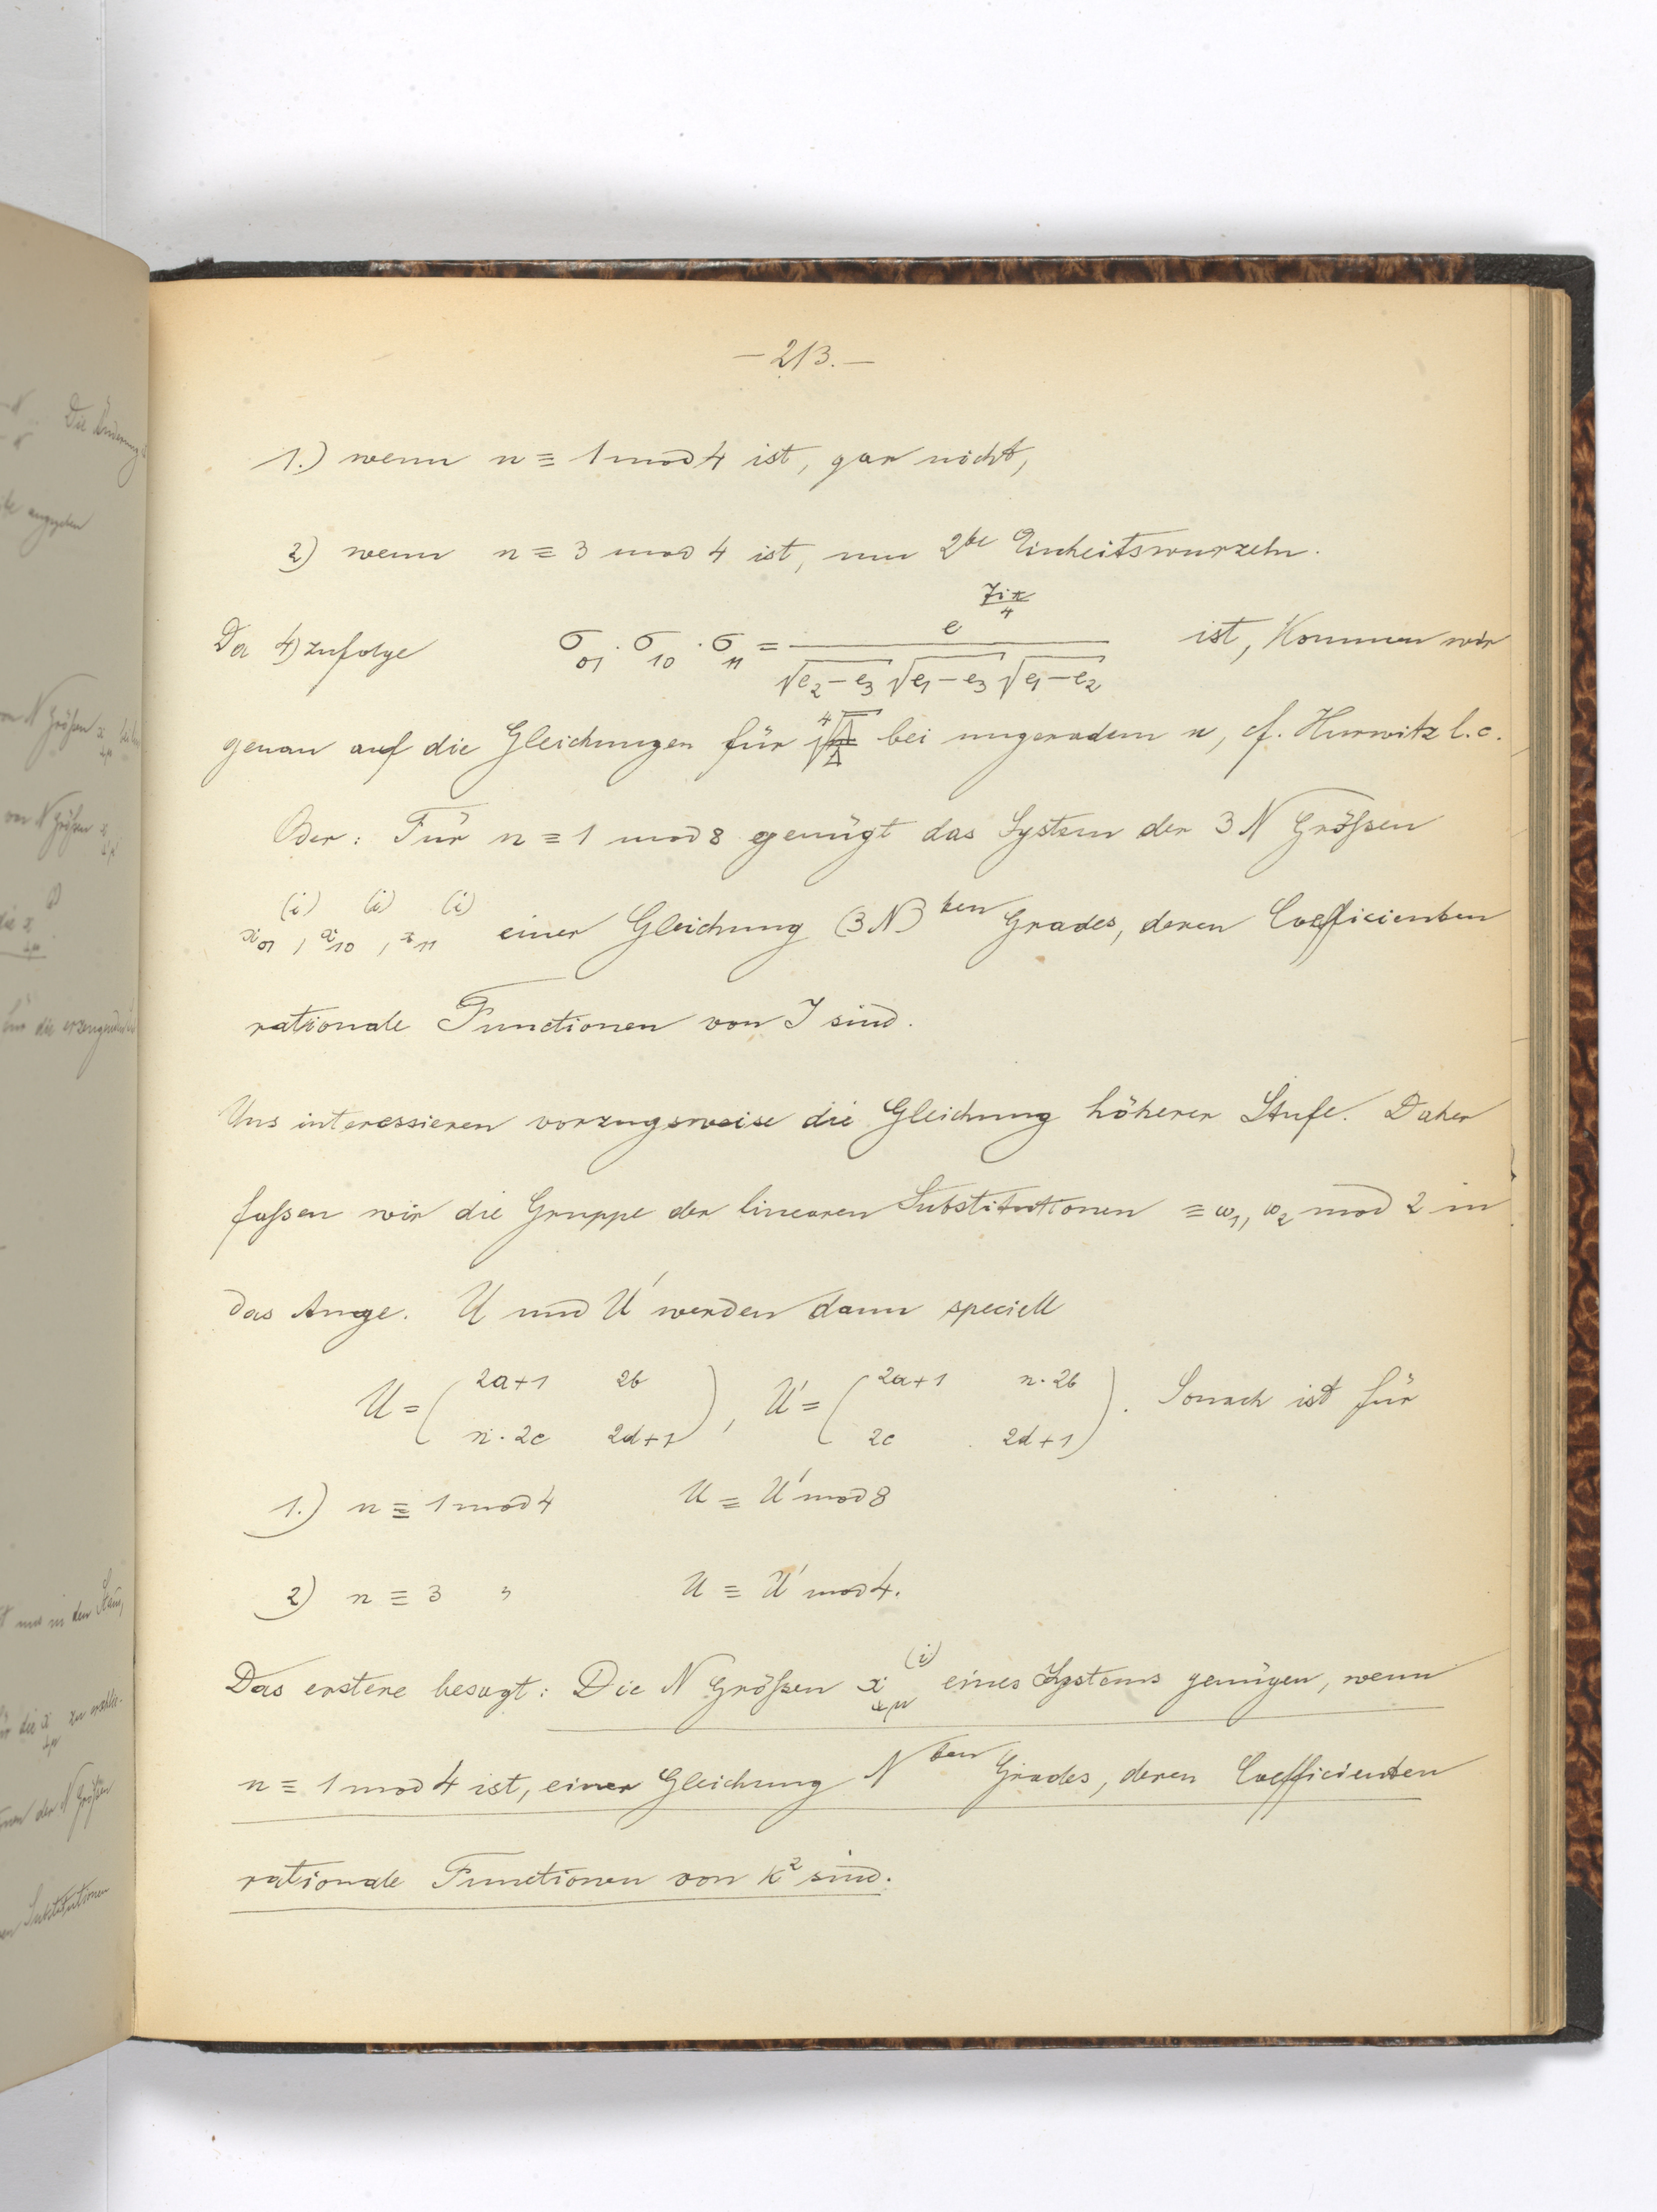 — 213. —
1.) wenn n ≡ 1 mod 4 ist, gar nicht,
2) wenn n ≡ 3 mod 4 ist, um 2te Einheitswurzeln.
Da 4) zufolge σ₀₁ · σ₁₀ · σ₁₁ = e^{7iπ/4} / (√(e₂−e₃) √(e₁−e₃) √(e₁−e₂)) ist, kommen wir
genau auf die Gleichungen für bei ungeradem n, cf. Hurwitz l. c.
Oder: Für n ≡ 1 mod 8 genügt das System der 3 N Größen
x₀₁^(i), x₁₀^(i), x₁₁^(i) einer Gleichung (3N)ten Grades, deren Coefficienten
rationale Functionen von J sind.
Uns interessieren vorzugsweise die Gleichung höherer Stufe. Daher
faßen wir die Gruppe der linearen Substitutionen ≡ ω₁, ω₂ mod 2 in
das Auge. U und U′ werden dann speciell
U = ( 2a+1 2b ; n·2c 2d+1 ), U′ = ( 2a+1 n·2b ; 2c 2d+1 ). Sonach ist für
1.) n ≡ 1 mod 4 U ≡ U′ mod 8
2) n ≡ 3 " U ≡ U′ mod 4.
Das erstere besagt: Die N Größen x_{λμ}^(i) eines Systems genügen, wenn
n ≡ 1 mod 4 ist, einer Gleichung Nten Grades, deren Coefficienten
rationale Functionen von k² sind.